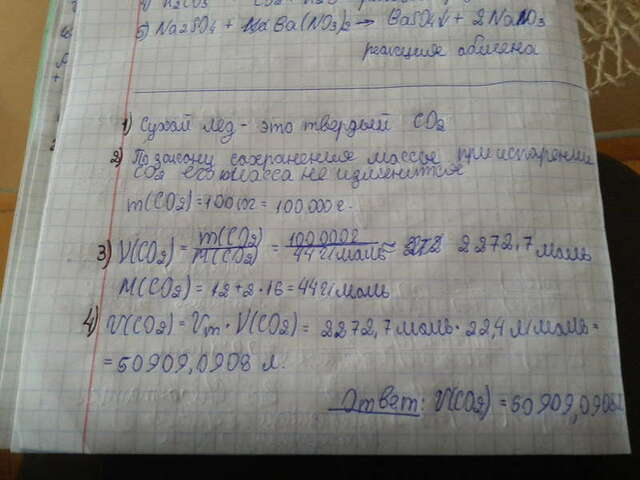 5) Na2SO4 + Ba(NO3)2 → BaSO4↓ + 2NaNO3
реакция обмена
1) Сухой лёд - это твердый CO2
2) По закону сохранения массы при испарении
CO2 его масса не изменится
m(CO2) = 100 кг = 100 000 г.
3) V(CO2) = m(CO2)/M(CO2) = 100000г/44г/моль ≈ 2272,7 моль
M(CO2) = 12+2·16=44г/моль
4) V(CO2) = Vm · V(CO2) = 2272,7 моль · 22,4 л/моль =
= 50909,0908 л.
Ответ: V(CO2) = 50909,0908